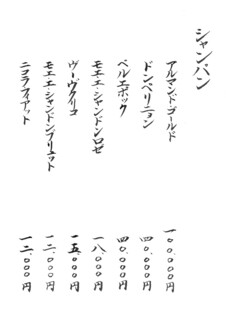 シャンパン
アルマンド・ゴールド 一〇〇,〇〇〇円
ドンペリニョン 四〇,〇〇〇円
ベルエポック 四〇,〇〇〇円
モエエ・シャンドンロゼ 一八,〇〇〇円
ヴーヴクリコ 一五,〇〇〇円
モエエ・シャンドンブリュット 一二,〇〇〇円
ニコラフィアット 一二,〇〇〇円